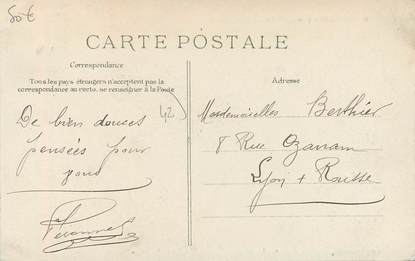 50€
CARTE POSTALE
Correspondance
Tous les pays étrangers n'acceptent pas la
correspondance au recto, se renseigner à la Poste
Adresse
42
De bien douces
pensées pour
vous
Mesdemoiselles Berthier
8 Rue Ozanam
Lyon + Rousse